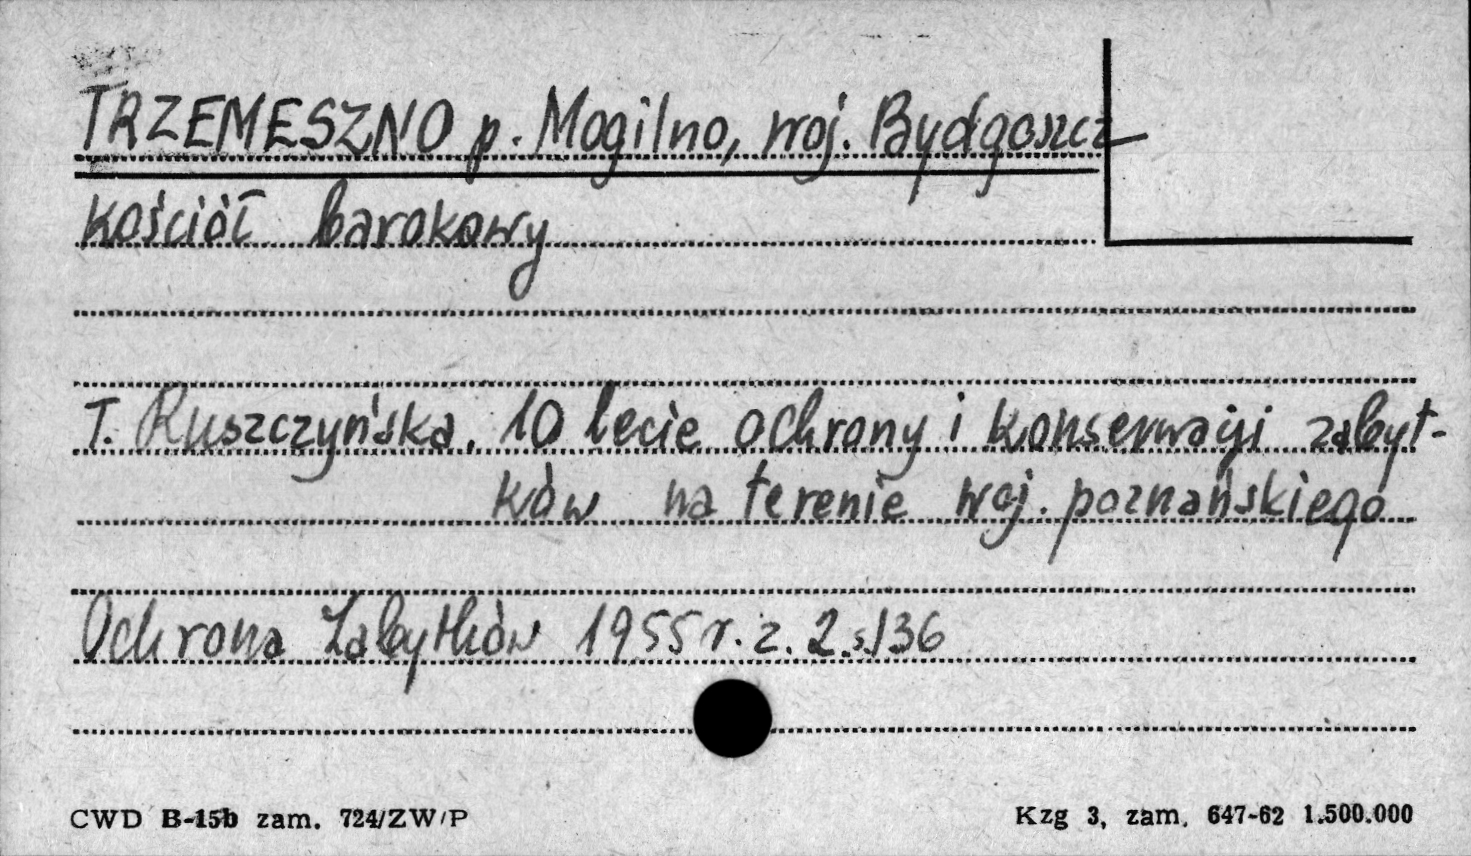 TRZEMESZNO p. Mogilno, woj. Bydgoszcz
kościół barokowy
T. Ruszczyńska. 10 lecie ochrony i konserwacji zabyt-
ków na terenie woj. poznańskiego
Ochrona Zabytków 1955 r. z. 2 s. 136
CWD B-15b zam. 724/ZW/P
Kzg 3, zam. 647-62 1.500.000